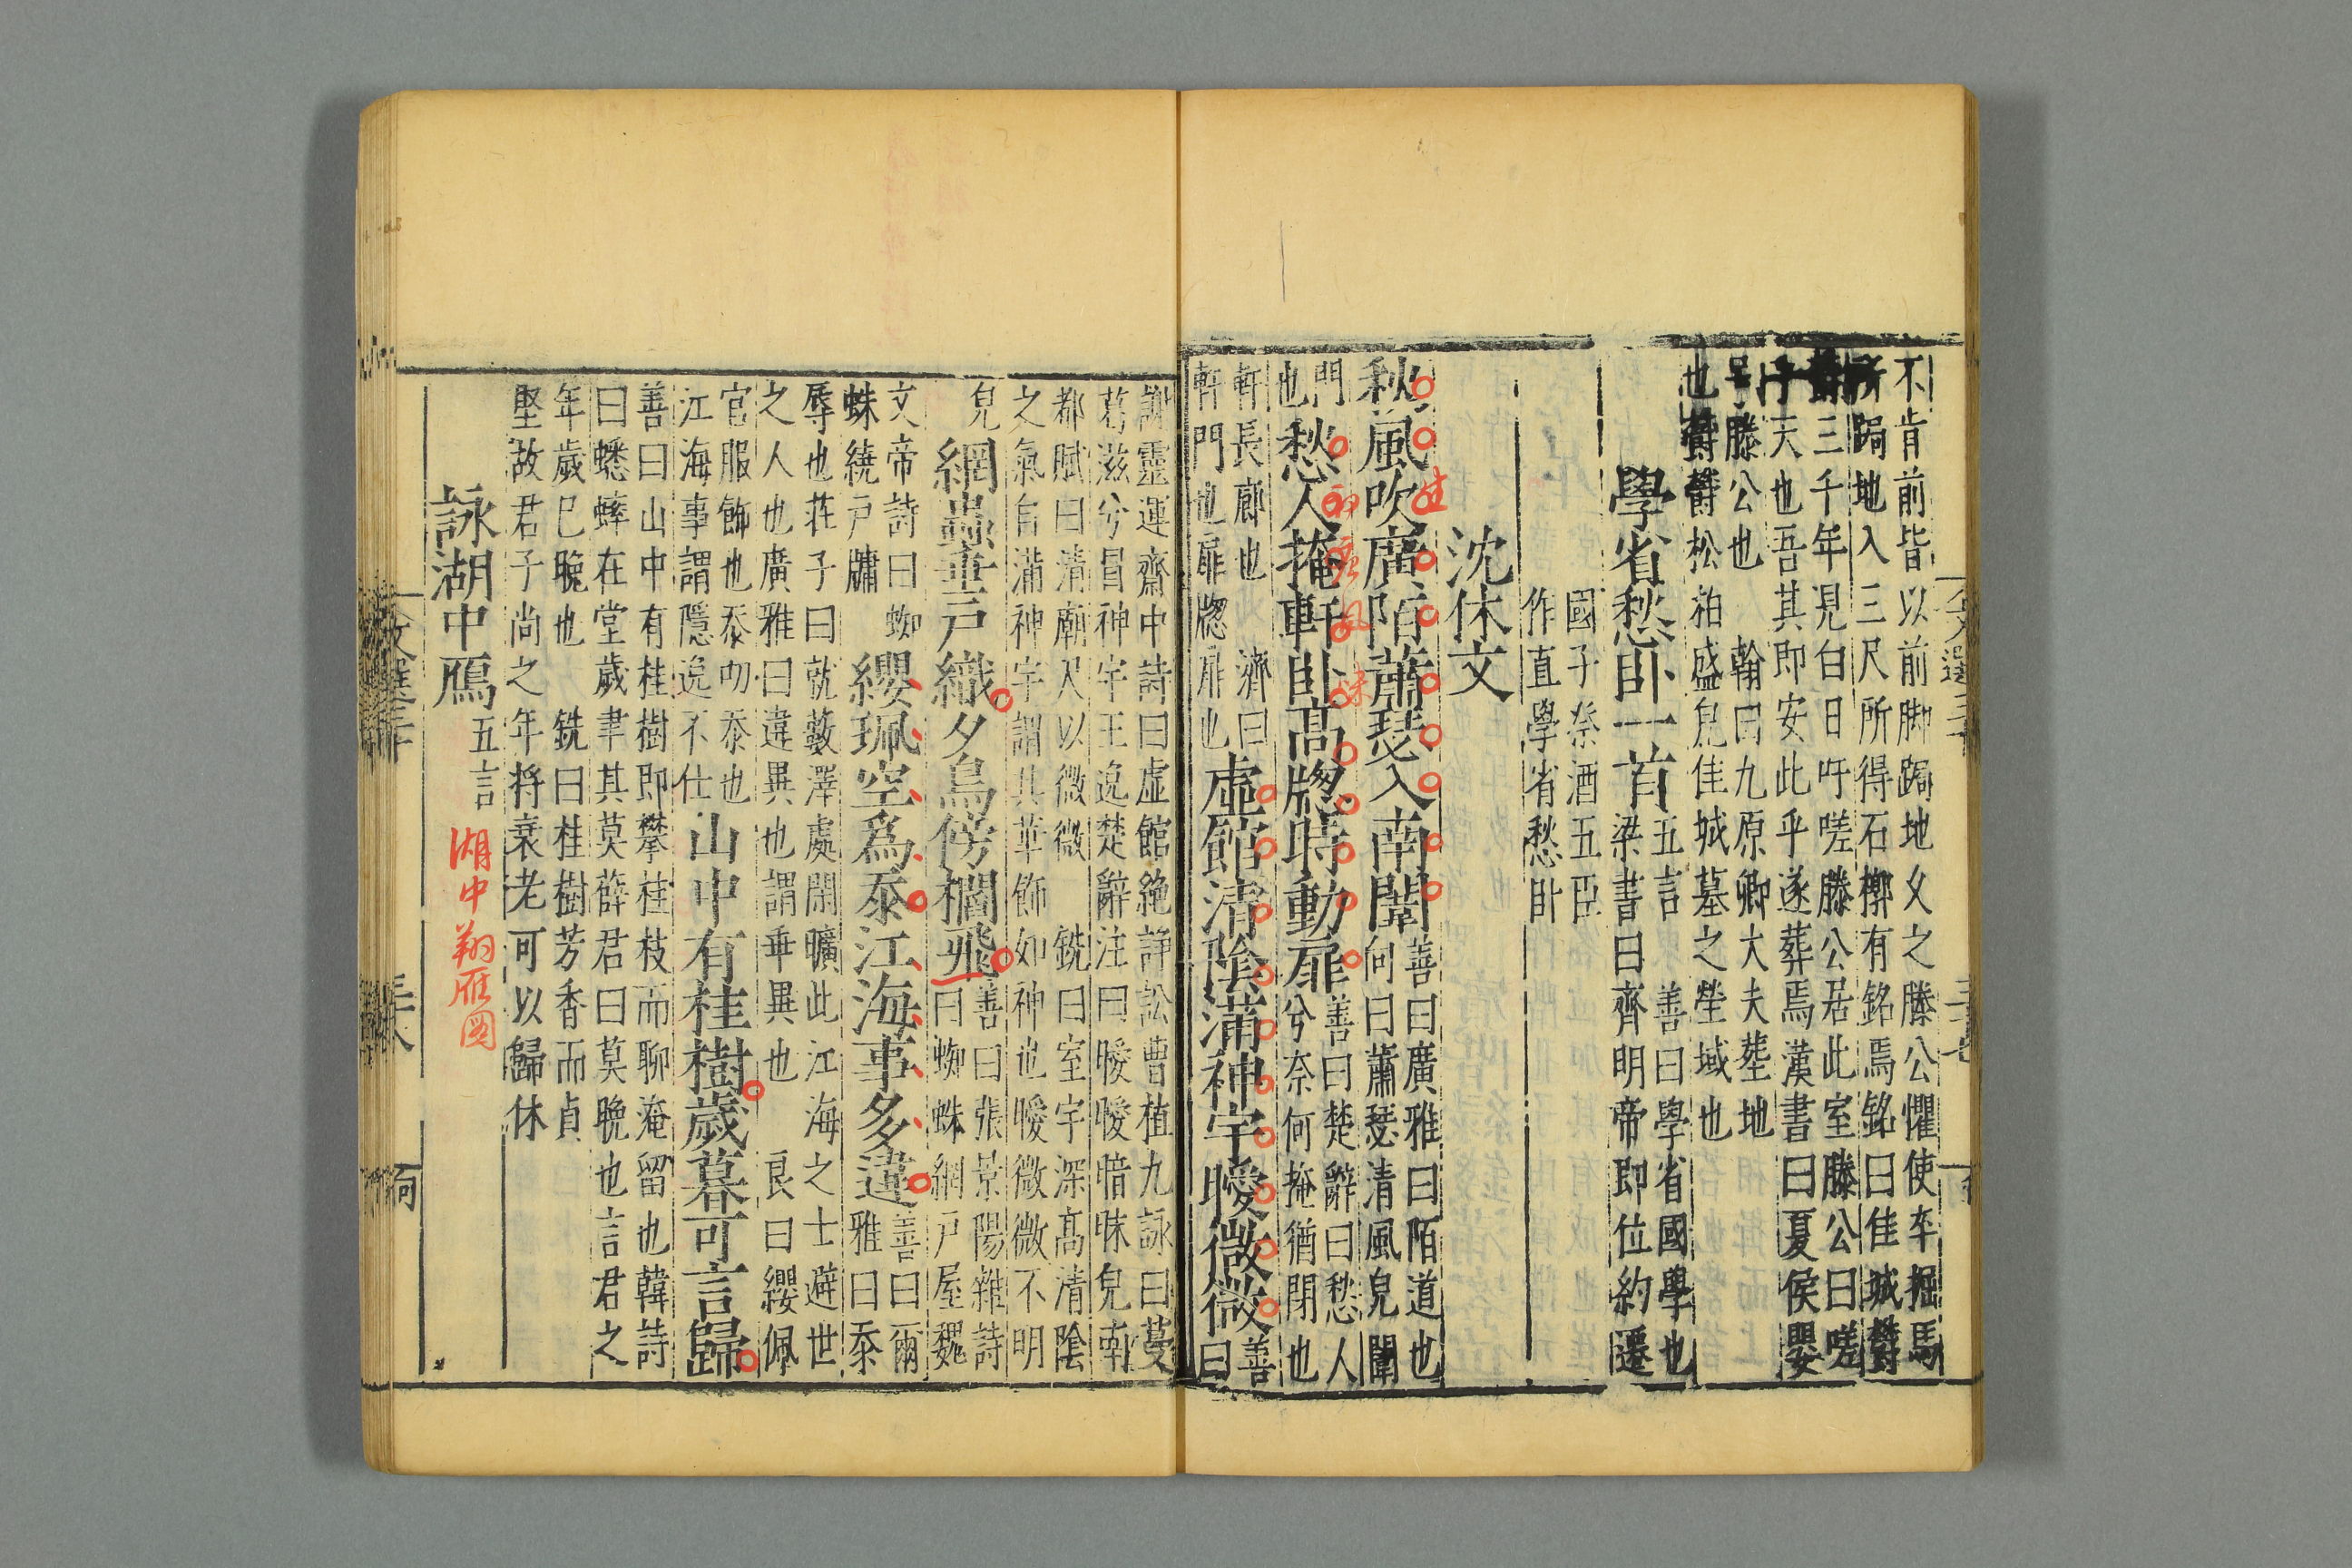 不肯前皆以前脚跼地久之滕公懼使卒掘馬
所跼地入三尺所得石槨有銘焉銘曰佳城欝
欝三千年見白日吁嗟滕公居此室滕公曰嗟
乎天也吾其即安此乎遂葬焉漢書曰夏侯嬰
号滕公也 翰曰九原卿大夫塟地
也欝欝松柏盛皃佳城墓之塋域也
學省愁卧一首
五言 善曰學省國學也
梁書曰齊明帝即位約遷
國子祭酒五臣
作直學省愁卧
沈休文
秋風吹廣陌蕭瑟入南闈
善曰廣雅曰陌道也
向曰蕭瑟清風皃闈
門
也
愁人掩軒卧高牕時動扉
善曰楚辭曰愁人
兮奈何掩猶閉也
軒長廊也 濟曰
軒門也扉牕扉也
虛館清陰滿神宇曖微微
善
曰
謝靈運齋中詩曰虛館絶諍訟曹植九詠曰蔓
葛滋兮冒神宇王逸楚辭注曰曖曖暗昧皃
都賦曰清廟乂以微微 銑曰室宇深高清陰
之氣自滿神宇謂其華飾如神也曖微微不明
皃
網蟲垂戶織夕鳥傍櫩飛
善曰張景陽雜詩
曰蜘蛛網戶屋魏
文帝詩曰蜘
蛛繞戶牖
纓珮空爲忝江海事多違
善曰爾
雅曰忝
辱也莊子曰就藪澤處閑曠此江海之士避世
之人也廣雅曰違異也謂乖異也 良曰纓佩
官服飾也忝叨忝也
江海事謂隱逸不仕
山中有桂樹歲暮可言歸
善曰山中有桂樹即攀桂枝而聊淹留也韓詩
曰蟋蟀在堂歲聿其莫薛君曰莫晩也言君之
年歲已晩也 銑曰桂樹芳香而貞
堅故君子尚之年将衰老可以歸休
詠湖中鴈
五言
湖中翔雁図